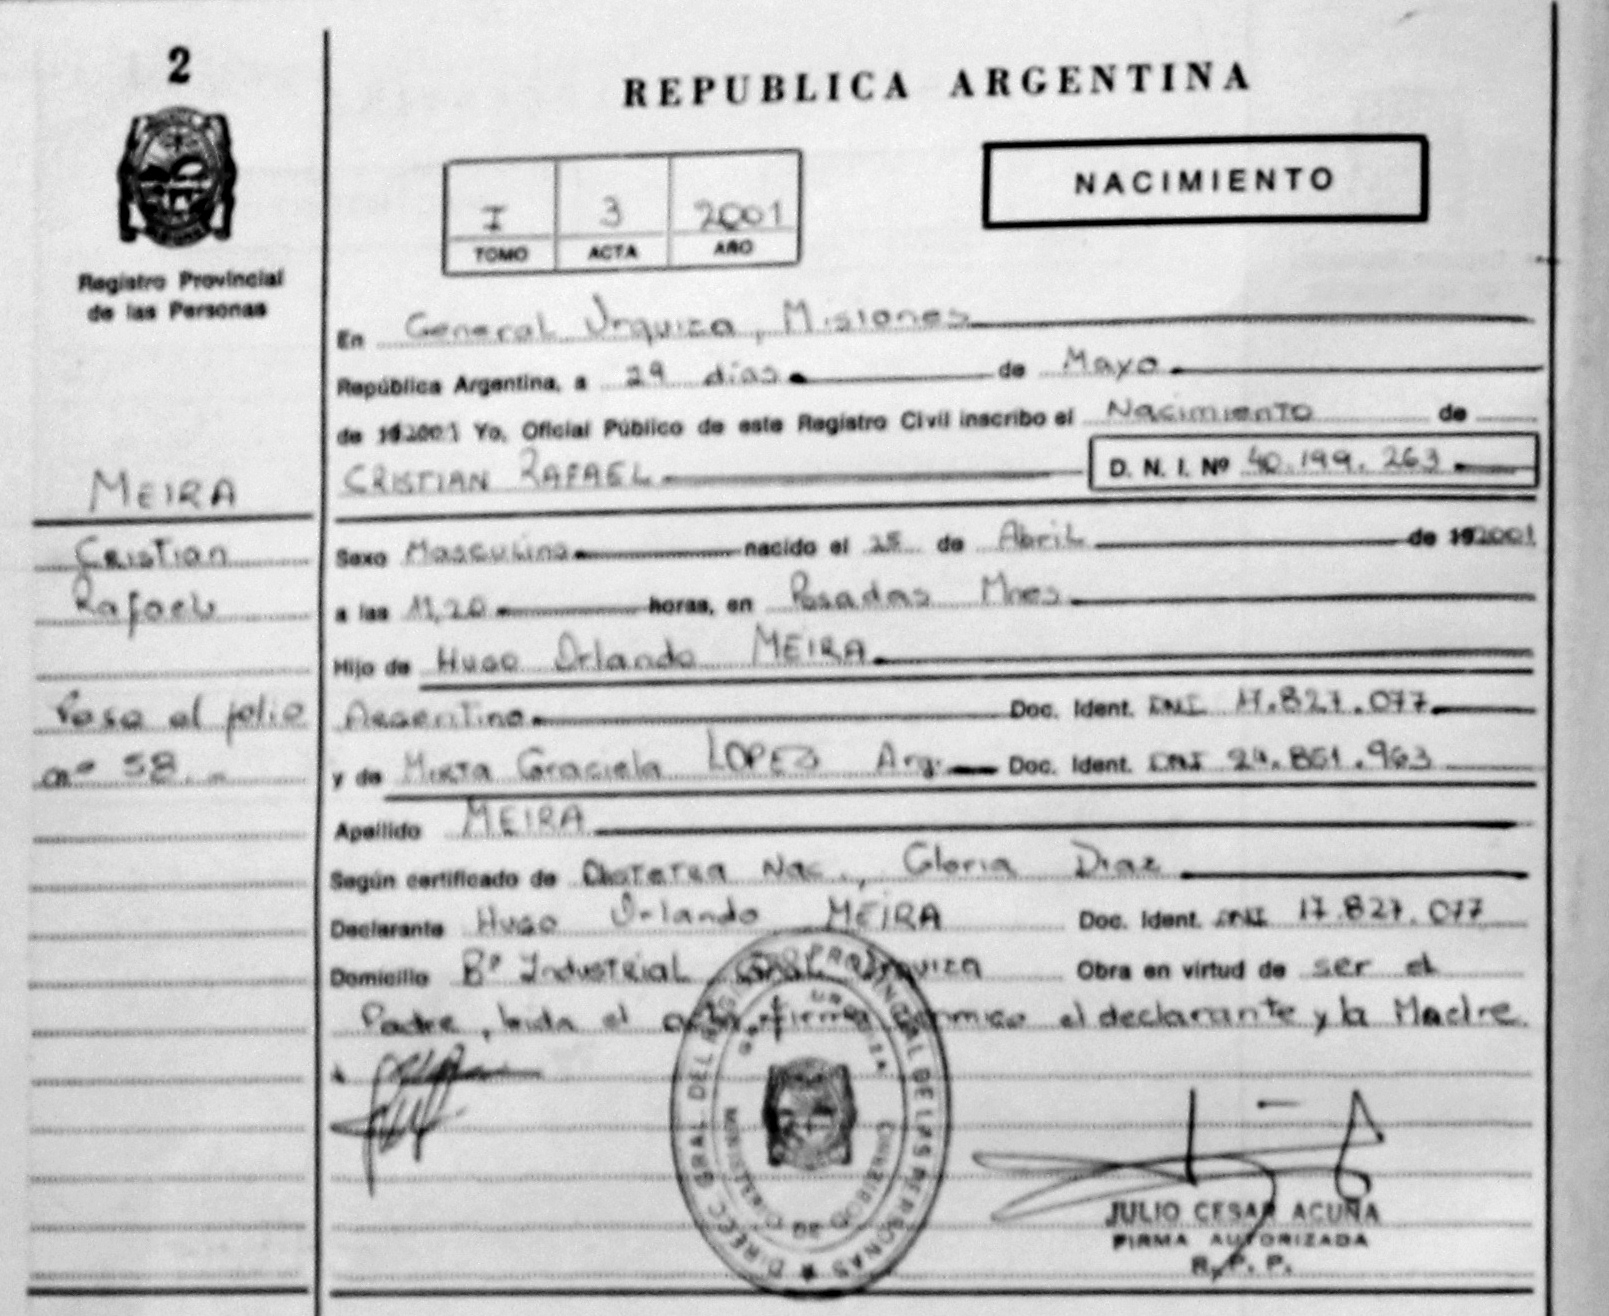 2
REPUBLICA ARGENTINA
NACIMIENTO
I 3 2001
TOMO ACTA AÑO
Registro Provincial
de las Personas
En General Urquiza, Misiones
República Argentina, a 29 días de Mayo
de 192001 Yo, Oficial Público de este Registro Civil inscribo el Nacimiento de
CRISTIAN RAFAEL D. N. I. Nº 40.199.263
MEIRA
Cristian
Rafael
Paso al folio
nº 58
Sexo Masculino nacido el 25 de Abril de 192001
a las 11,20 horas, en Posadas Mnes
Hijo de Hugo Orlando MEIRA
Argentino Doc. Ident. DNI 17.827.077
y de Mirta Graciela LOPEZ Arg. Doc. Ident. DNI 24.851.963
Apellido MEIRA
Según certificado de Obstetra Nac., Gloria Diaz
Declarante Hugo Orlando MEIRA Doc. Ident. DNI 17.827.077
Domicilio Bº Industrial Gral Urquiza Obra en virtud de ser el
Padre, leida el acta firma conmigo el declarante y la Madre
DIREC. GRAL DEL REG. PROVINCIAL DE LAS PERSONAS
GRAL URQUIZA
MINISTERIO DE GOBIERNO
JULIO CESAR ACUÑA
FIRMA AUTORIZADA
R. P. P.